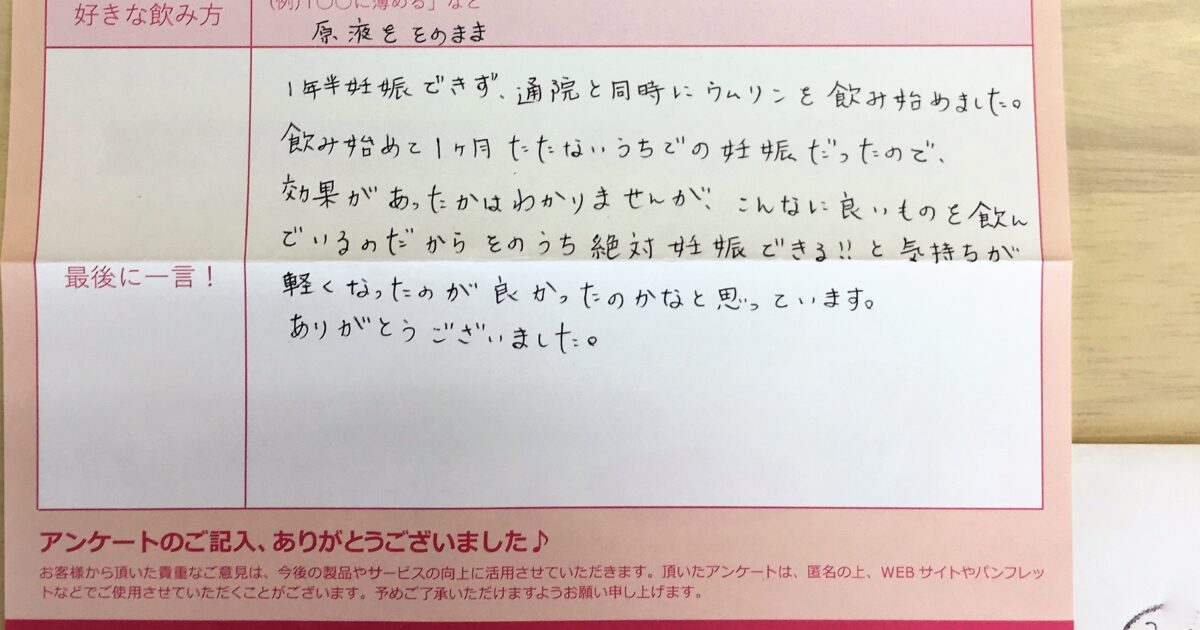 好きな飲み方
(例)「〇〇に薄める」など
原液をそのまま
1年半妊娠できず、通院と同時にウムリンを飲み始めました。
飲み始めて1ヶ月たたないうちでの妊娠だったので、
効果があったかはわかりませんが、こんなに良いものを飲ん
でいるのだからそのうち絶対妊娠できる!!と気持ちが
最後に一言!
軽くなったのが良かったのかなと思っています。
ありがとうございました。
アンケートのご記入、ありがとうございました♪
お客様から頂いた貴重なご意見は、今後の製品やサービスの向上に活用させていただきます。頂いたアンケートは、匿名の上、WEBサイトやパンフレッ
トなどでご使用させていただくことがございます。予めご了承いただけますようお願い申し上げます。